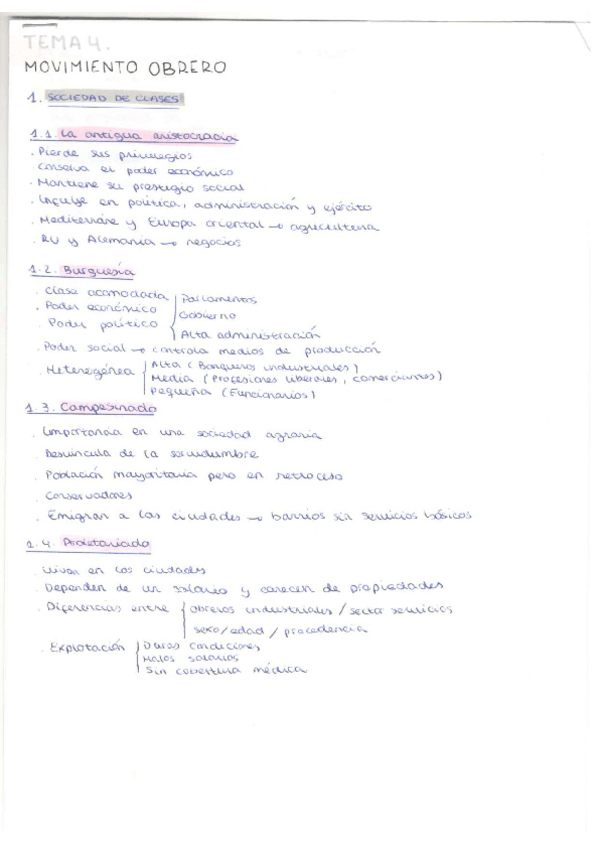 TEMA 4.
MOVIMIENTO OBRERO
1. SOCIEDAD DE CLASES
1.1. La antigua aristocracia
. Pierde sus privilegios
. Conserva el poder económico
. Mantiene su prestigio social
. Influye en política, administración y ejército
. Mediterráne y Europa oriental → agricultura
. RU y Alemania → negocios
1.2. Burguesía
. Clase acomodada
. Poder económico
. Poder político { Parlamentos
Gobierno
Alta administración
. Poder social → controla medios de producción
. Heterogénea { Alta (Banqueros industriales)
Media (Profesiones liberales, comerciantes)
Pequeña (Funcionarios)
1.3. Campesinado
. Importancia en una sociedad agraria
. Desvincula de la servidumbre
. Población mayoritaria pero en retroceso
. Conservadores
. Emigran a las ciudades → barrios sin servicios básicos
1.4. Proletariado
. Viven en las ciudades
. Dependen de un salario y carecen de propiedades
. Diferencias entre { obreros industriales / sector servicios
sexo / edad / procedencia
. Explotación { Duras condiciones
Malos salarios
Sin cobertura médica